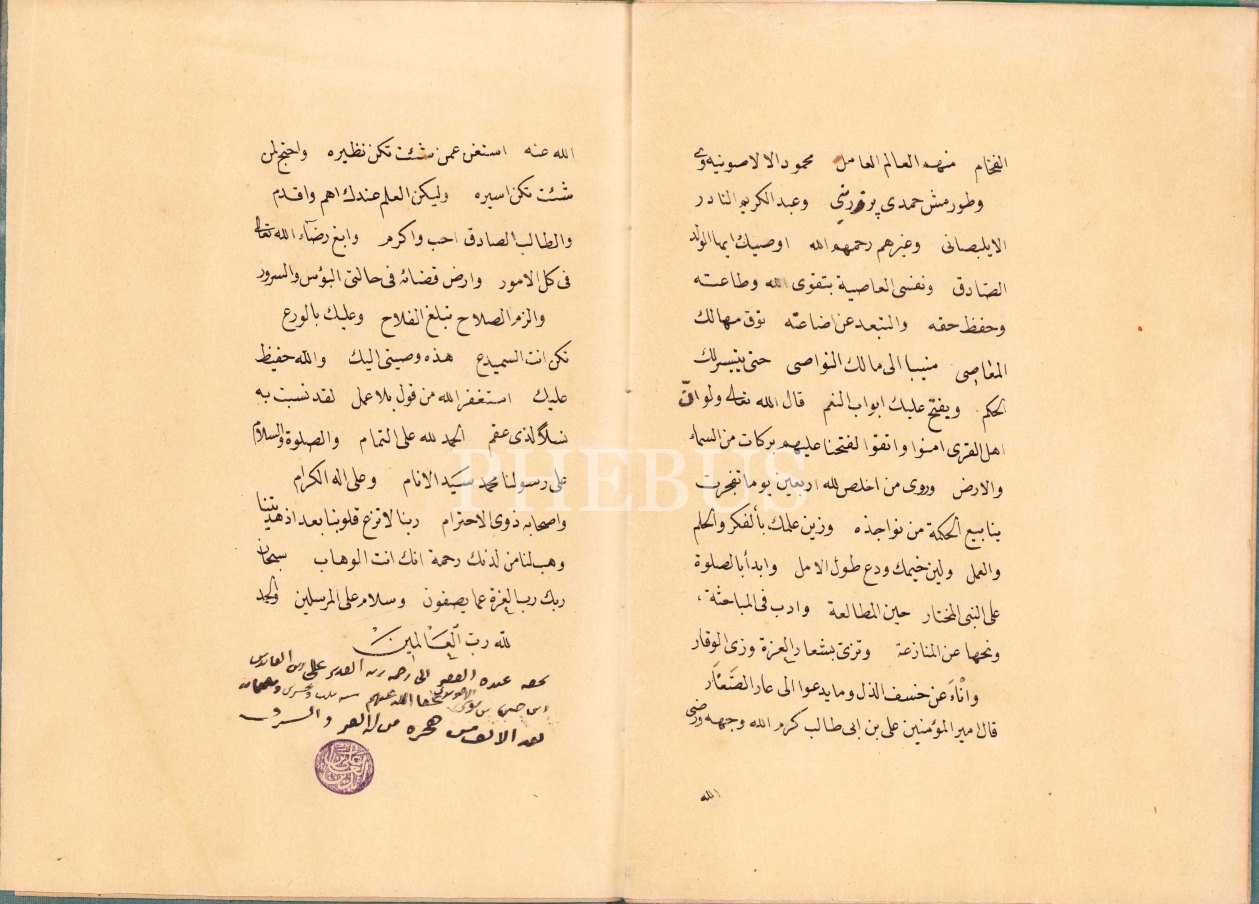 الفخام منهم العالم العامل محمود الالاصونيه وى
وطورمش حمدى وعبد الكريم النادر
الايلبصانى وغيرهم رحمهم الله اوصيك ايها الولد
الصّادق ونفسى العاصية بتقوى الله وطاعته
وحفظ حقه والتبعد عن اضاعته توق مهالك
المعاصى منيبا الى مالك النواصى حتى يتيسر لك
الحكم ويفتح عليك ابواب النعم قال الله تعالى ولو انّ
اهل القرى امنوا واتقوا لفتحنا عليهم بركات من السماء
والارض وروى من اخلص لله اربعين يوما تفجرت
ينابيع الحكمة من نواجذه وزين علمك بالفكر والحلم
والعمل ولين خيمك ودع طول الامل وابدأ بالصلوة
على النبى المختار حين المطالعة وادب فى المباحثة،
ونحها عن المنازعة وتزىّ بشعار العزة وزى الوقار
وانْاَءَ عن خسف الذل وما يدعوا الى عار الصَّغار
قال امير المؤمنين على بن ابى طالب كرم الله وجهه ورضى
الله
الله عنه استغن عمن شئت تكن نظيره واحتج لمن
شئت تكن اسيره وليكن العلم عندك اهم واقدم
والطالب الصادق احب واكرم وابغ رضآء الله تعالى
فى كل الامور وارض قضائه فى حالتى البؤس والسرور
والزم الصلاح تبلغ الفلاح وعليك بالورع
تكن انت السميدع هذه وصيتى اليك والله حفيظ
عليك استغفر الله من قول بلا عمل لقد نسبت به
نسلاً لذى عقم الحمد لله على التمام والصلوة والسلام
على رسولنا محمد سيد الانام وعلى اله الكرام
واصحابه ذوى الاحترام ربنا لا تزغ قلوبنا بعد اذ هديتنا
وهب لنا من لدنك رحمة انك انت الوهاب سبحان
ربك رب العزة عما يصفون وسلام على المرسلين والحمد
لله رب العالمين
عبده الفقير الى رحمة ربه القدير على
ابن حسن بن عفا الله عنهم
بعد الالف من هجرة من له العز والشرف
PHEBUS